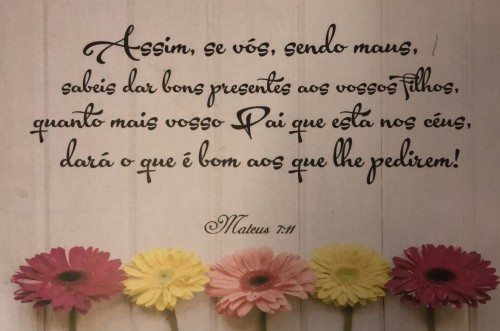 Assim, se vós, sendo maus,
sabeis dar bons presentes aos vossos filhos,
quanto mais vosso Pai que está nos céus,
dará o que é bom aos que lhe pedirem!
Mateus 7:11